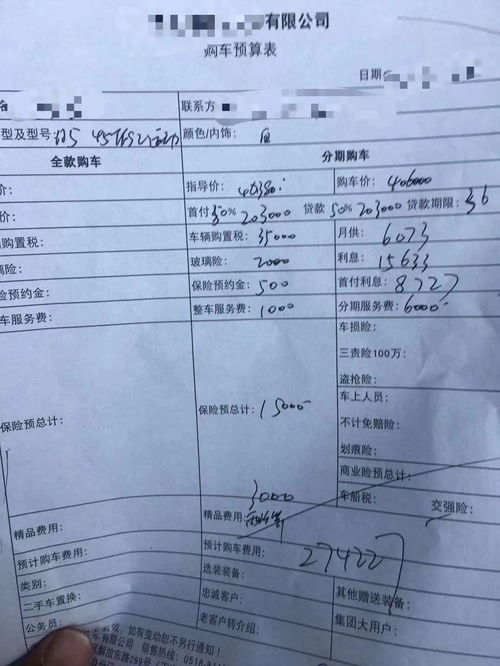 有限公司
购车预算表
日期
联系方
型及型号: Q5 45TFSI 颜色/内饰: 白
全款购车 分期购车
价: 指导价: 购车价: 406000
价: 首付50% 203000 贷款50% 203000 贷款期限: 36
车辆购置税: 车辆购置税: 35000 月供: 6073
璃险: 玻璃险: 2000 利息: 15633
险预约金: 保险预约金: 500 首付利息: 8727
车服务费: 整车服务费: 1000 分期服务费: 6000
车损险:
三责险100万:
盗抢险:
保险预总计: 保险预总计: 15000 车上人员:
不计免赔险:
划痕险:
商业险预总计:
3000 车船税: 交强险:
精品费用: 精品费用:
预计购车费用: 预计购车费用: 274227
类别: 选装装备: 其他赠送装备:
二手车置换: 忠诚客户: 集团大用户:
公务员: 老客户转介绍:
效, 如有变动恕不另行通知!
车有限公司 销售热线: 0518-81
解放东路299号